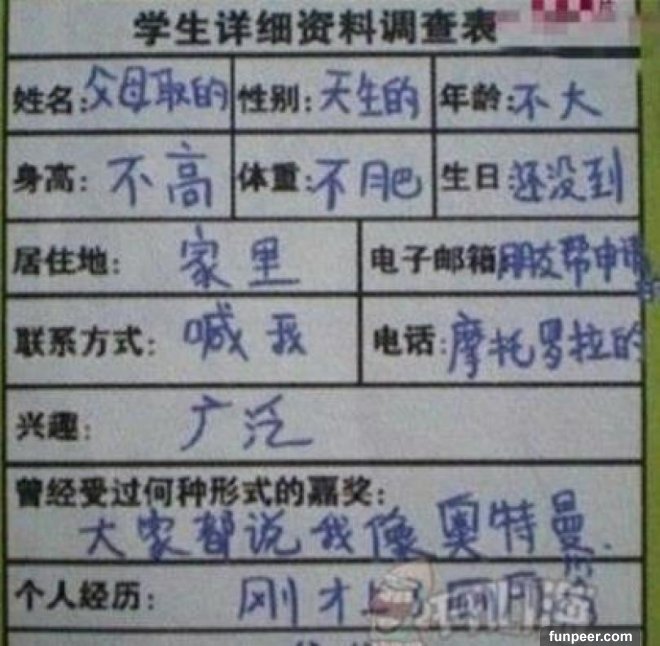 片
学生详细资料调查表
姓名:父母取的 性别:天生的 年龄:不大
身高: 不高 体重:不肥 生日 还没到
居住地: 家里 电子邮箱朋友帮申请的
联系方式: 喊我 电话:摩托罗拉的
兴趣: 广泛
曾经受过何种形式的嘉奖:
大家都说我像奥特曼.
个人经历: 刚才上了
funpeer.com